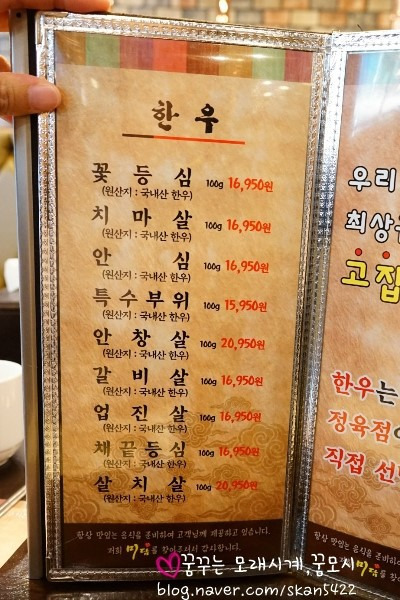 한우
꽃등심 100g 16,950원
(원산지 : 국내산 한우)
치마살 100g 16,950원
(원산지 : 국내산 한우)
안심 100g 16,950원
(원산지 : 국내산 한우)
특수부위 100g 15,950원
(원산지 : 국내산 한우)
안창살 100g 20,950원
(원산지 : 국내산 한우)
갈비살 100g 16,950원
(원산지 : 국내산 한우)
업진살 100g 16,950원
(원산지 : 국내산 한우)
채끝등심 100g 16,950원
(원산지 : 국내산 한우)
살치살 100g 20,950원
(원산지 : 국내산 한우)
항상 맛있는 음식을 준비하여 고객님께 제공하고 있습니다.
저희 를 찾아주셔서 감사합니다.
우리
최상
고집
한우는
정육점
직접 선
항상 맛있는 음식을 준비하여 고
저희 를 찾아
꿈꾸는 모래시계,꿈모시
blog.naver.com/skan5422